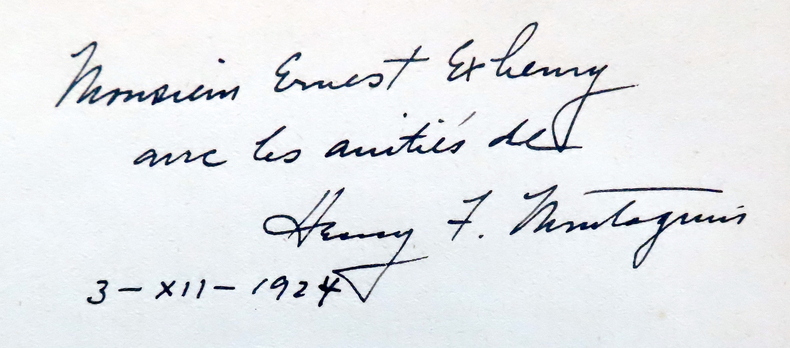 Monsieur Ernest Exhenry
avec les amitiés de
Henry F. Montagnier
3-XII-1924